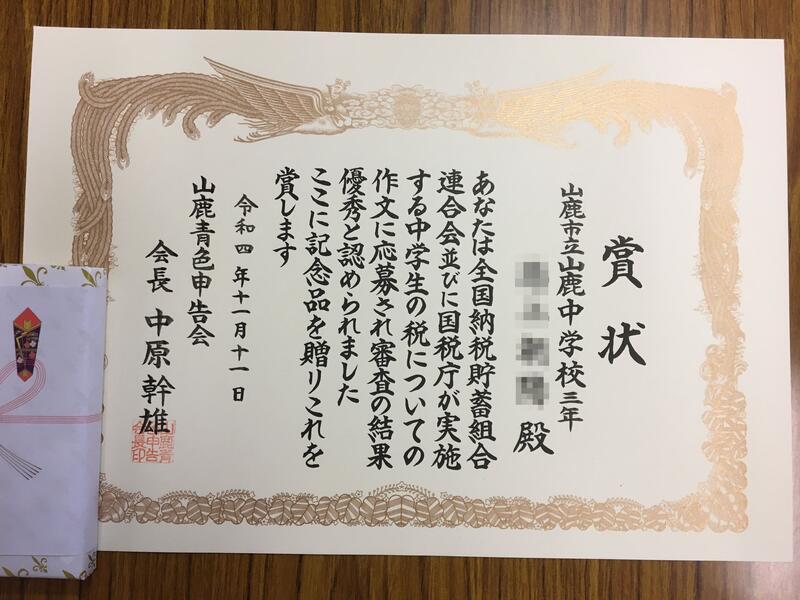 賞状
山鹿市立山鹿中学校三年
殿
あなたは全国納税貯蓄組合
連合会並びに国税庁が実施
する中学生の税についての
作文に応募され審査の結果
優秀と認められました
ここに記念品を贈りこれを
賞します
令和四年十一月十一日
山鹿青色申告会
会長 中原幹雄